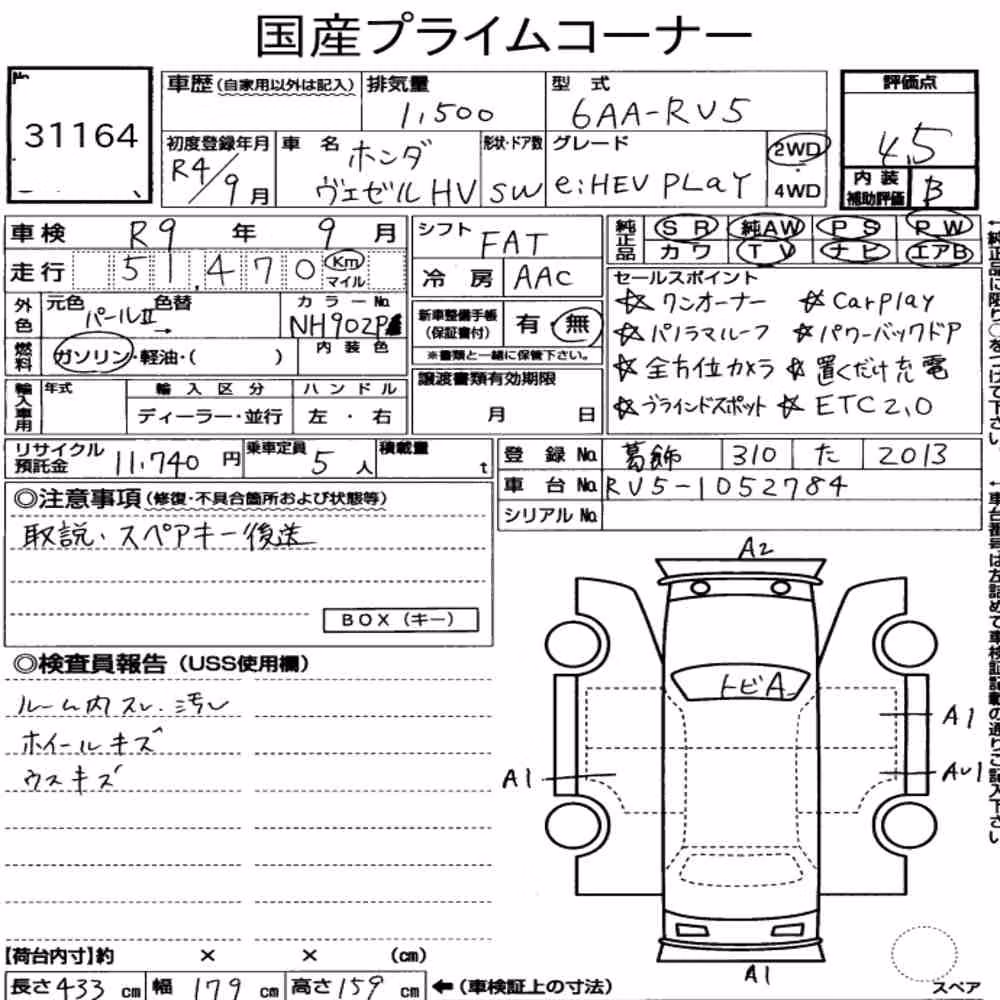 国産プライムコーナー
No.
31164
車歴(自家用以外は記入) 排気量 型式 評価点
1,500 6AA-RV5
初度登録年月 車名 形状・ドア数 グレード
R4/9月 ホンダ ヴェゼルHV SW e:HEV PLaY 2WD 4WD
4.5
内装補助評価 B
車検 R9年 9月
走行 51,470 Km マイル
シフト FAT
冷房 AAC
純正品 SR 純AW PS PW
カワ TV ナビ エアB
外色 元色 色替 カラーNo.
パールII→ NH902P
内装色
燃料 ガソリン・軽油・( )
新車整備手帳(保証書付) 有・無
※書類と一緒に保管下さい。
セールスポイント
☆ワンオーナー ☆Carplay
☆パノラマルーフ ☆パワーバックドア
☆全方位カメラ ☆置くだけ充電
☆ブラインドスポット ☆ETC2.0
輸入車用 年式 輸入区分 ハンドル
ディーラー・並行 左・右
譲渡書類有効期限
月 日
リサイクル預託金 11,740円 乗車定員 5人 積載量 t
登録No. 葛飾 310 た 2013
車台No. RV5-1052784
シリアルNo.
◎注意事項(修復・不具合箇所および状態等)
取説・スペアキー後送
BOX(キー)
◎検査員報告(USS使用欄)
ルーム内スレ・汚レ
ホイールキズ
ウスキズ
A2
トビA
A1
A1
AU1
A1
スペア
【荷台内寸】約 × × (cm)
長さ433cm 幅179cm 高さ159cm ←(車検証上の寸法)
←純正品に限り○をつけて下さい。
←車台番号は左詰めで車検証記載の通りご記入下さい